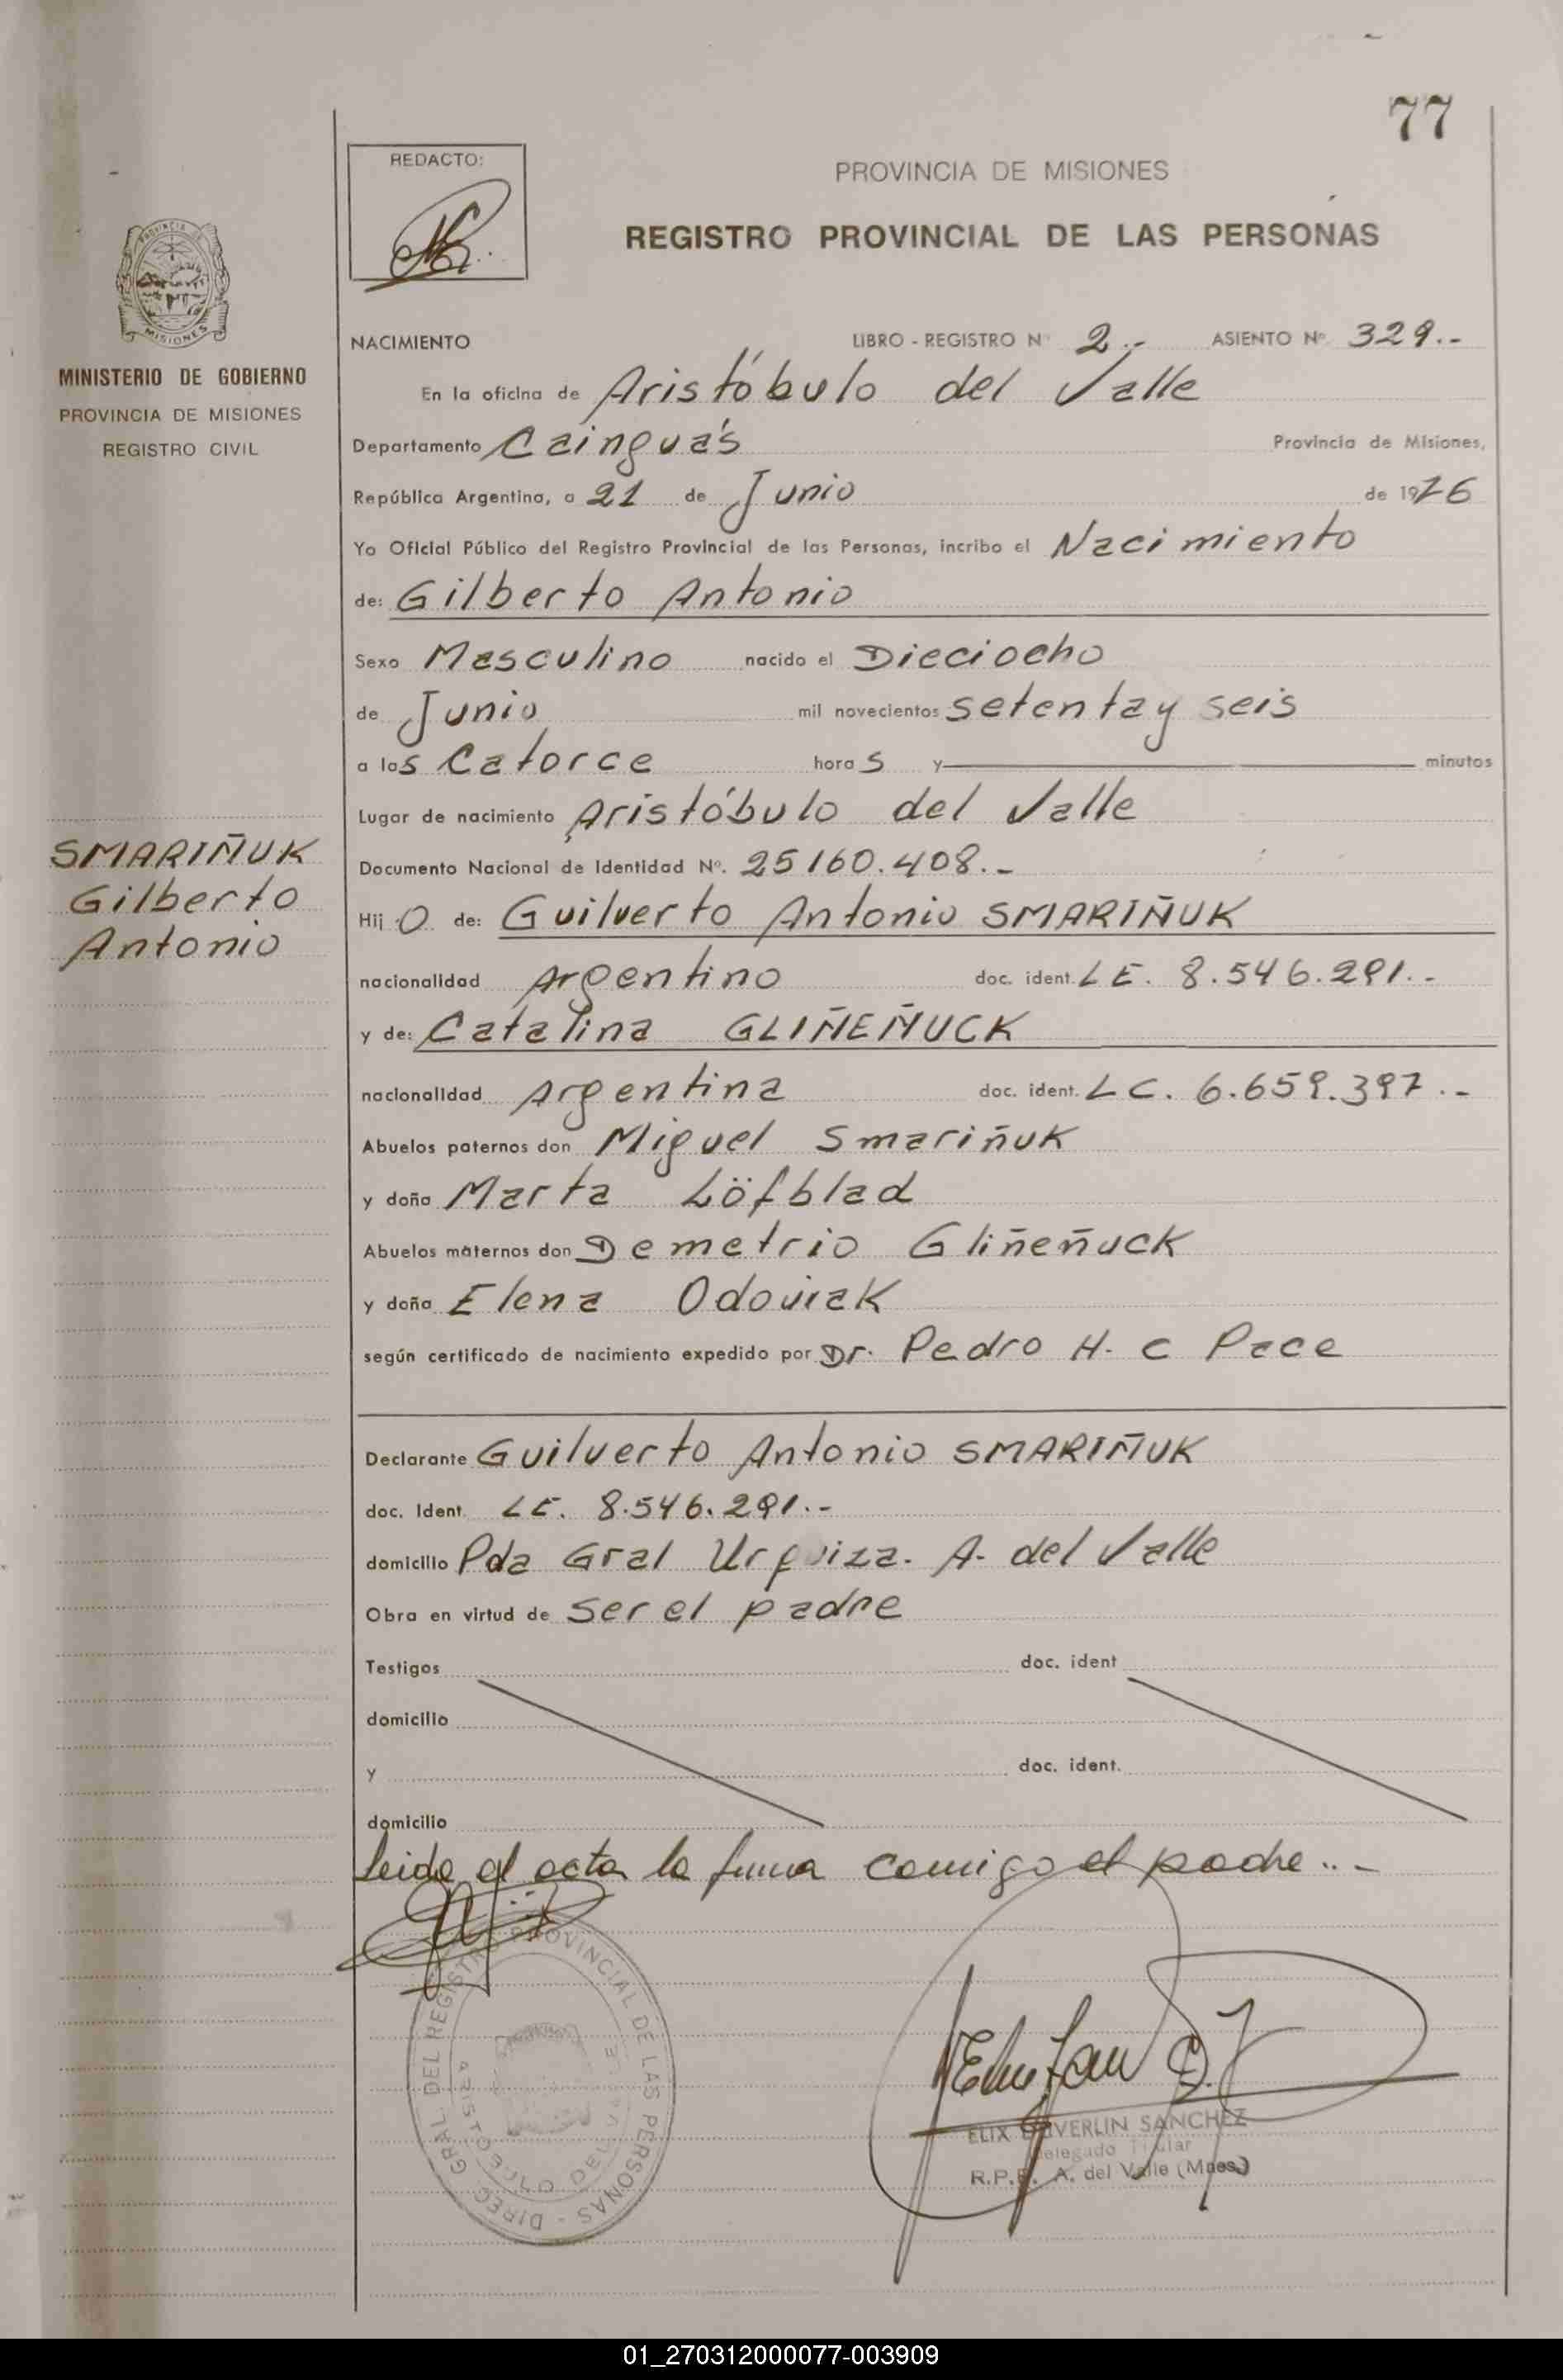 77
REDACTO:
PROVINCIA DE MISIONES
REGISTRO PROVINCIAL DE LAS PERSONAS
PROVINCIA DE
MISIONES
MINISTERIO DE GOBIERNO
PROVINCIA DE MISIONES
REGISTRO CIVIL
SMARIÑUK
Gilberto
Antonio
NACIMIENTO LIBRO - REGISTRO Nº 2.- ASIENTO Nº 329.-
En la oficina de Aristóbulo del Valle
Departamento Cainguás Provincia de Misiones,
República Argentina, a 21 de Junio de 1976
Yo Oficial Público del Registro Provincial de las Personas, incribo el Nacimiento
de: Gilberto Antonio
Sexo Masculino nacido el Dieciocho
de Junio mil novecientos setenta y seis
a las Catorce horas y minutos
Lugar de nacimiento Aristóbulo del Valle
Documento Nacional de Identidad Nº. 25160.408.-
Hijo de: Guilverto Antonio SMARIÑUK
nacionalidad Argentino doc. ident. LE. 8.546.291.-
y de: Catalina GLIÑEÑUCK
nacionalidad Argentina doc. ident. LC. 6.659.397.-
Abuelos paternos don Miguel Smariñuk
y doña Marta Löfblad
Abuelos maternos don Demetrio Gliñeñuck
y doña Elena Odoviak
según certificado de nacimiento expedido por Dr. Pedro H. C Pace
Declarante Guilverto Antonio SMARIÑUK
doc. Ident. LE. 8.546.291.-
domicilio Pda Gral Urquiza. A. del Valle
Obra en virtud de ser el padre
Testigos doc. ident
domicilio
y doc. ident.
domicilio
Leida el acta la firma comigo el padre..-
DIREC. GRAL. DEL REGISTRO PROVINCIAL DE LAS PERSONAS -
ARISTOBULO DEL VALLE
SANCHEZ
Delegado Titular
R.P.P. A. del Valle (Mnes.)
01_270312000077-003909